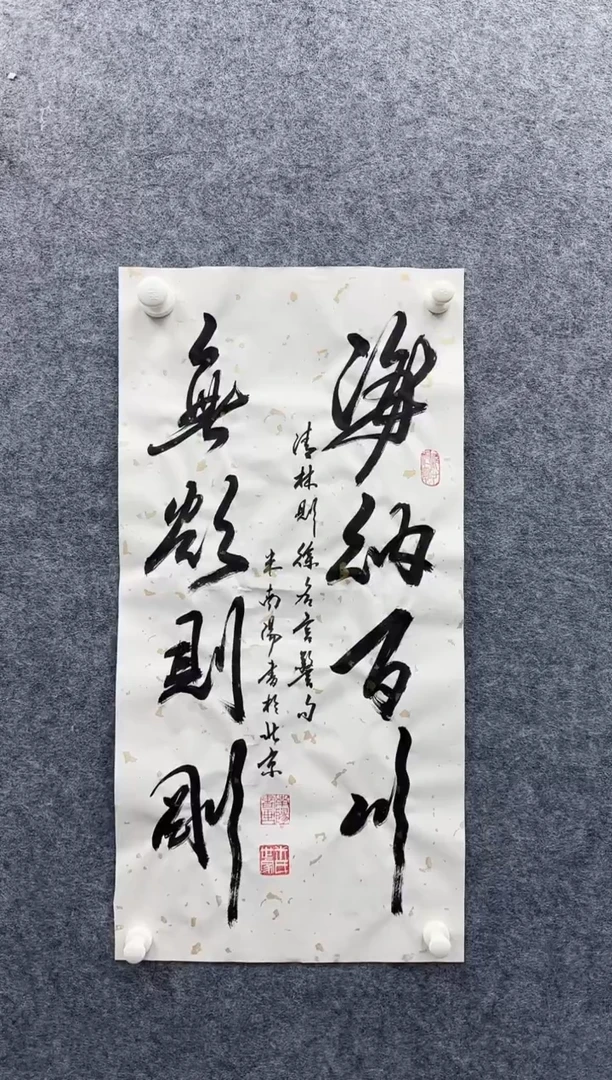 海納百川
無欲則剛
清林則徐名言警句
米南陽書於北京